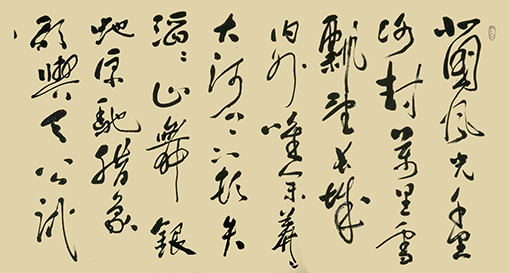 北國風光千里
冰封萬里雪
飄望長城
内外唯余莽々
大河上下頓失
滔々山舞銀
蛇原馳腊象
欲與天公試